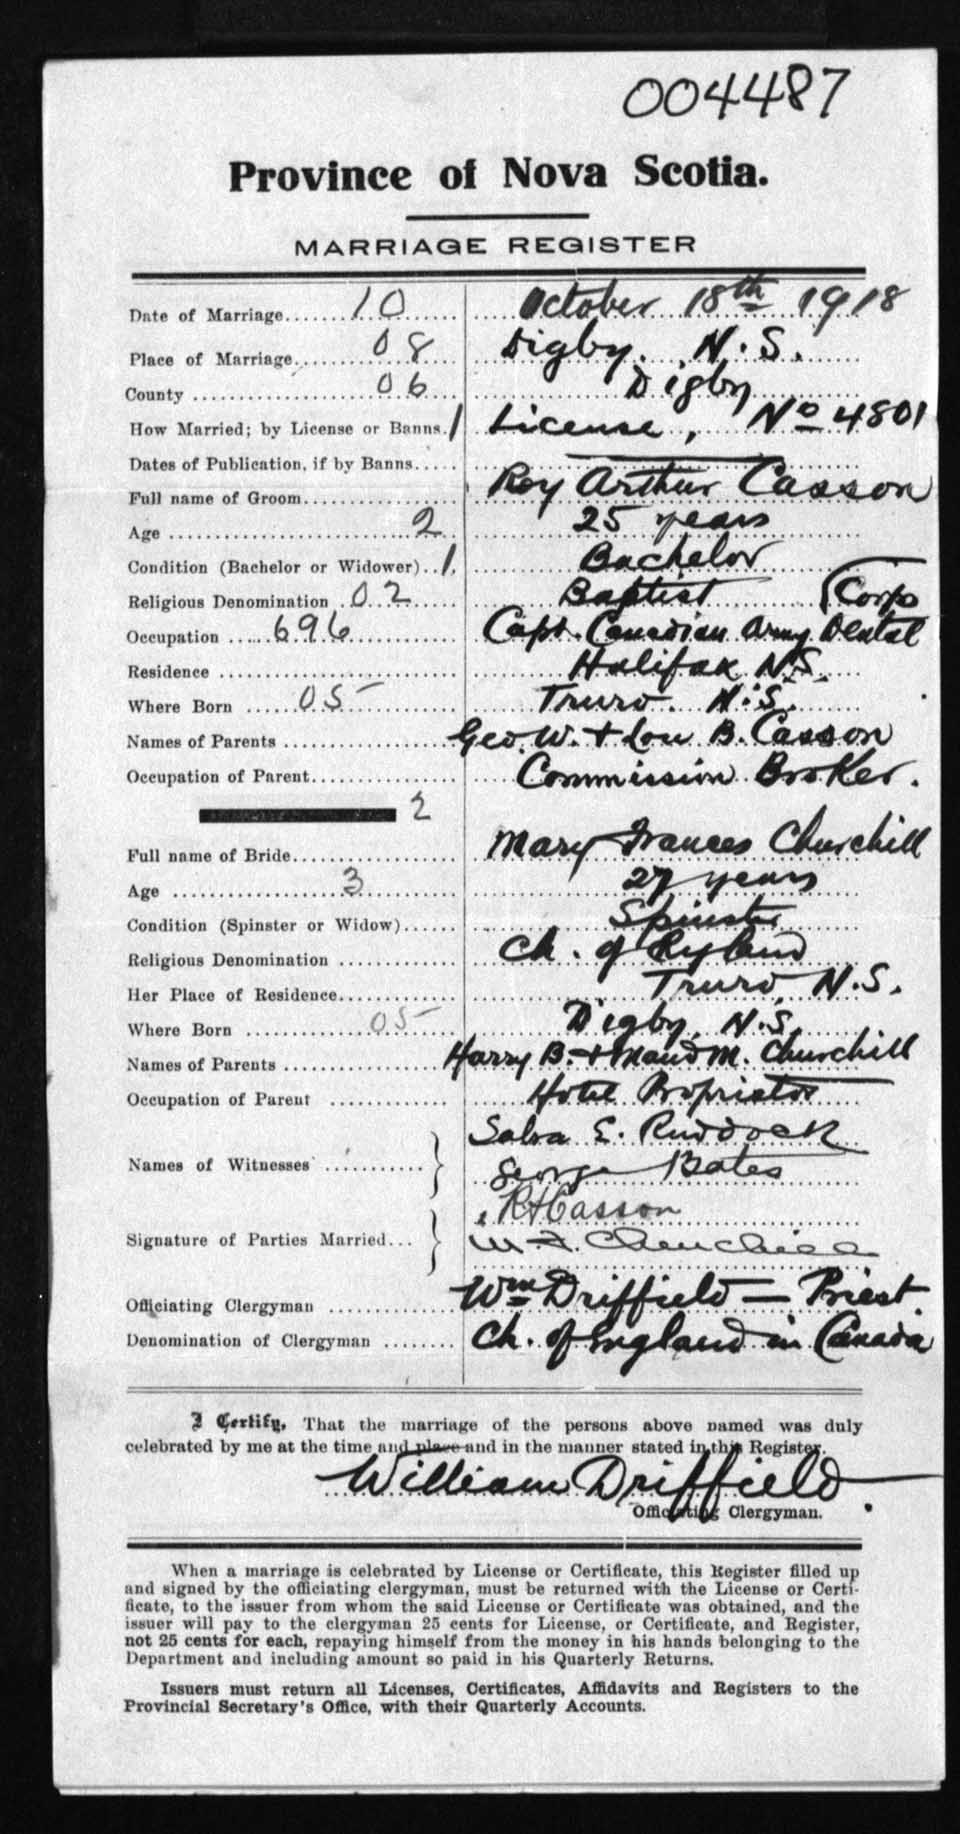 004487
Province of Nova Scotia.
MARRIAGE REGISTER
Date of Marriage 10 October 18th 1918
Place of Marriage 08 Digby. N.S.
County 06 Digby
How Married; by License or Banns. 1 License, No 4801
Dates of Publication, if by Banns
Full name of Groom Roy Arthur Casson
Age 2 25 years
Condition (Bachelor or Widower) 1. Bachelor
Religious Denomination 02 Baptist (Corps
Occupation 696 Capt. Canadian Army Dental
Residence Halifax N.S.
Where Born 05 Truro. N.S.
Names of Parents Geo. W. + Lou B. Casson
Occupation of Parent Commission Broker.
2
Full name of Bride Mary Frances Churchill
Age 3 27 years
Condition (Spinster or Widow) Spinster
Religious Denomination Ch. of England
Her Place of Residence Truro, N.S.
Where Born 05 Digby, N.S.
Names of Parents Harry B. + Maud M. Churchill
Occupation of Parent Hotel Proprietor
Names of Witnesses } E. Ruddock
George Bates
Signature of Parties Married } Casson
M F. Churchill
Officiating Clergyman Wm Driffield — Priest.
Denomination of Clergyman Ch. of England in Canada
I Certify, That the marriage of the persons above named was duly
celebrated by me at the time and place and in the manner stated in this Register.
William Driffield.
Officiating Clergyman.
When a marriage is celebrated by License or Certificate, this Register filled up
and signed by the officiating clergyman, must be returned with the License or Certi-
ficate, to the issuer from whom the said License or Certificate was obtained, and the
issuer will pay to the clergyman 25 cents for License, or Certificate, and Register,
not 25 cents for each, repaying himself from the money in his hands belonging to the
Department and including amount so paid in his Quarterly Returns.
Issuers must return all Licenses, Certificates, Affidavits and Registers to the
Provincial Secretary's Office, with their Quarterly Accounts.